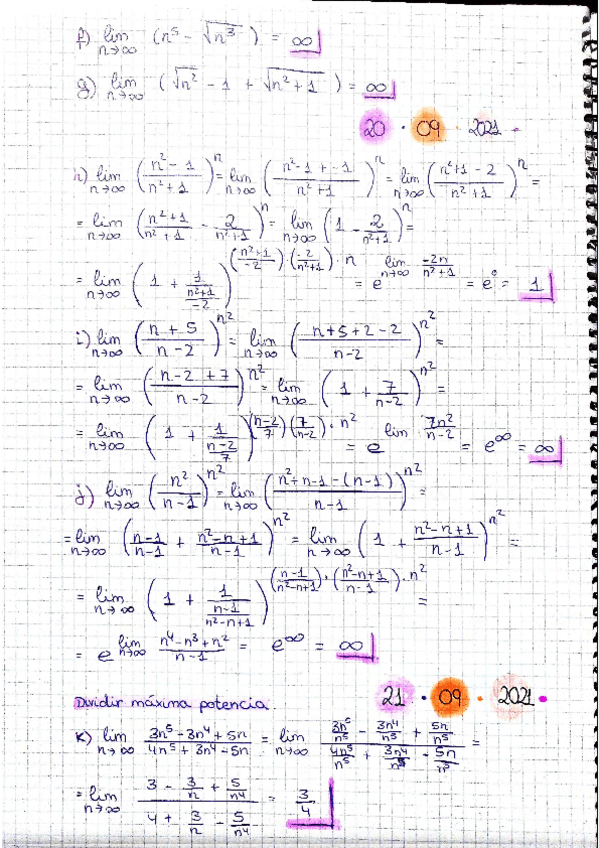 f) lim n→∞ (n⁵ - √n³) = ∞
g) lim n→∞ (√n² - 1 + √(n² + 1)) = ∞
20 · 09 · 2021 ·
h) lim n→∞ ((n² - 1)/(n² + 1))^n = lim n→∞ ((n² - 1 + - 1)/(n² + 1))^n = lim n→∞ ((n² + 1 - 2)/(n² + 1))^n =
= lim n→∞ ((n² + 1)/(n² + 1) - 2/(n² + 1))^n = lim n→∞ (1 - 2/(n² + 1))^n =
= lim n→∞ (1 + 1/((n² + 1)/-2))^(((n² + 1)/-2) · (-2/(n² + 1)) · n) = e^(lim n→∞ -2n/(n² + 1)) = e⁰ = 1
i) lim n→∞ ((n + 5)/(n - 2))^n² = lim n→∞ ((n + 5 + 2 - 2)/(n - 2))^n² =
= lim n→∞ ((n - 2 + 7)/(n - 2))^n² = lim n→∞ (1 + 7/(n - 2))^n² =
= lim n→∞ (1 + 1/((n - 2)/7))^(((n - 2)/7) (7/(n - 2)) · n²) = e^(lim 7n²/(n - 2)) = e^∞ = ∞
j) lim n→∞ (n²/(n - 1))^n² = lim n→∞ ((n² + n - 1 - (n - 1))/(n - 1))^n² =
= lim n→∞ ((n - 1)/(n - 1) + (n² - n + 1)/(n - 1))^n² = lim n→∞ (1 + (n² - n + 1)/(n - 1))^n² =
= lim n→∞ (1 + 1/((n - 1)/(n² - n + 1)))^(((n - 1)/(n² - n + 1)) · ((n² - n + 1)/(n - 1)) · n²) =
= e^(lim n→∞ (n⁴ - n³ + n²)/(n - 1)) = e^∞ = ∞
21 · 09 · 2021 ·
Dividir máxima potencia.
k) lim n→∞ (3n⁵ - 3n⁴ + 5n)/(4n⁵ + 3n⁴ - 5n) = lim n→∞ (3n⁵/n⁵ - 3n⁴/n⁵ + 5n/n⁵)/(4n⁵/n⁵ + 3n⁴/n⁵ - 5n/n⁵) =
= lim n→∞ (3 - 3/n + 5/n⁴)/(4 + 3/n - 5/n⁴) = 3/4